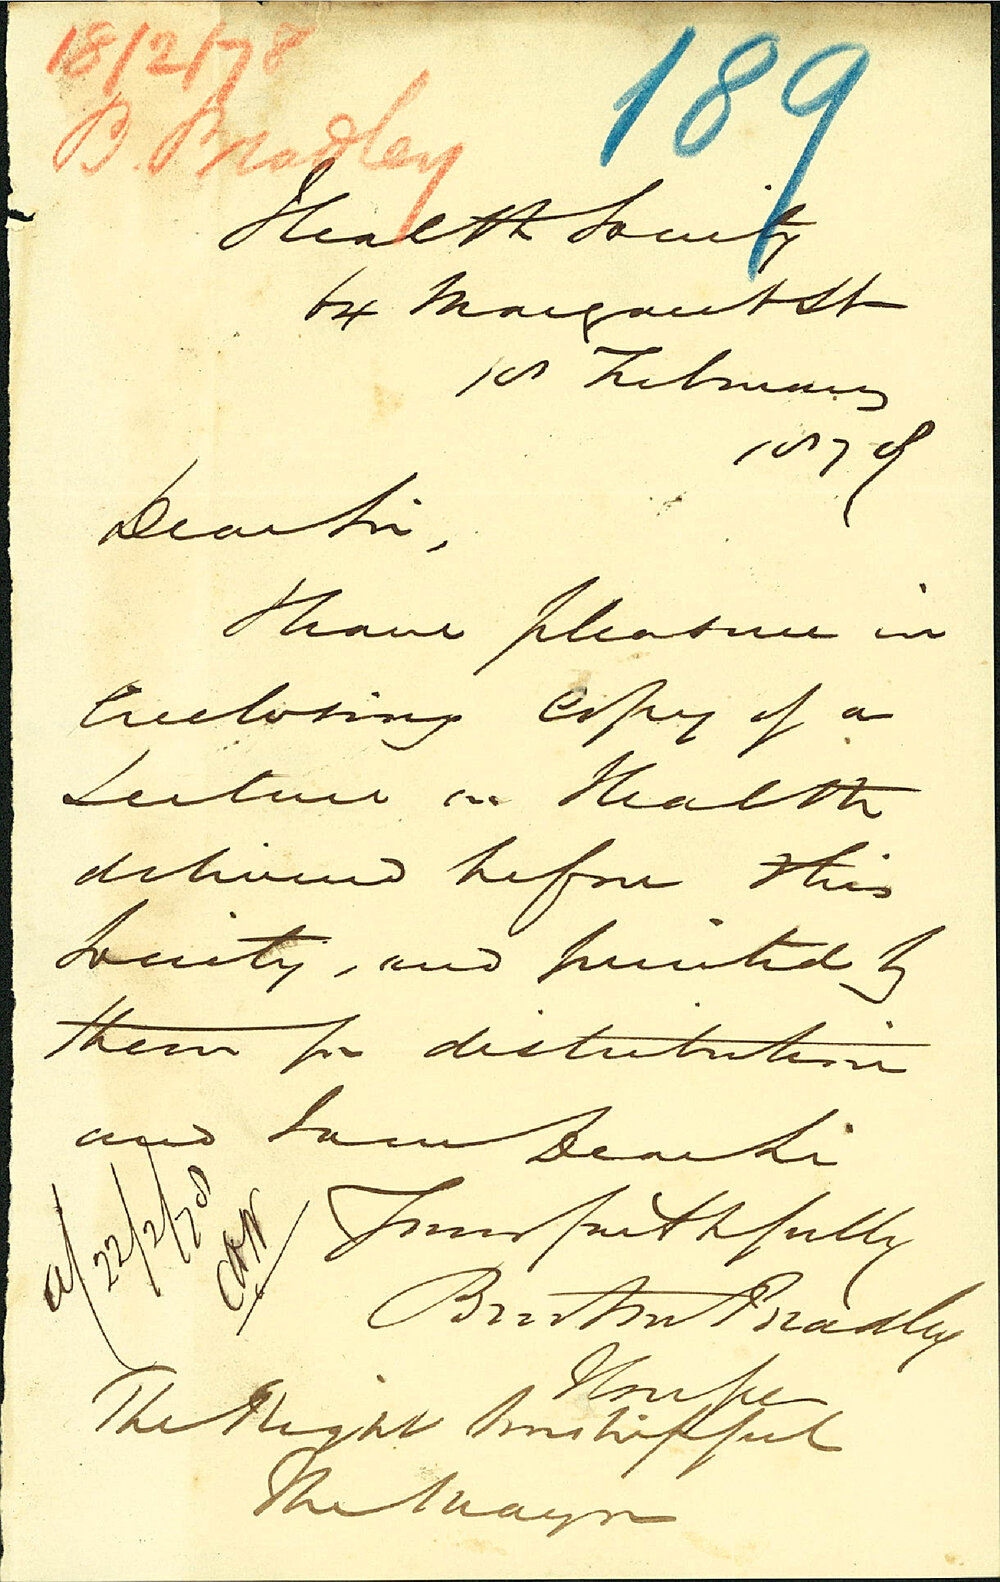 18/2/78
B. Bradley
189
Health Society
64 Margaret St
18 February
1878
Dear Sir,
I have pleasure in
Enclosing Copy of a
Lecture on Health
delivered before this
Society, and printed by
them for distribution
and I am Dear Sir
Yours faithfully
Burton Bradley
a/ 22/2/78
The Right Worshipful
The Mayor